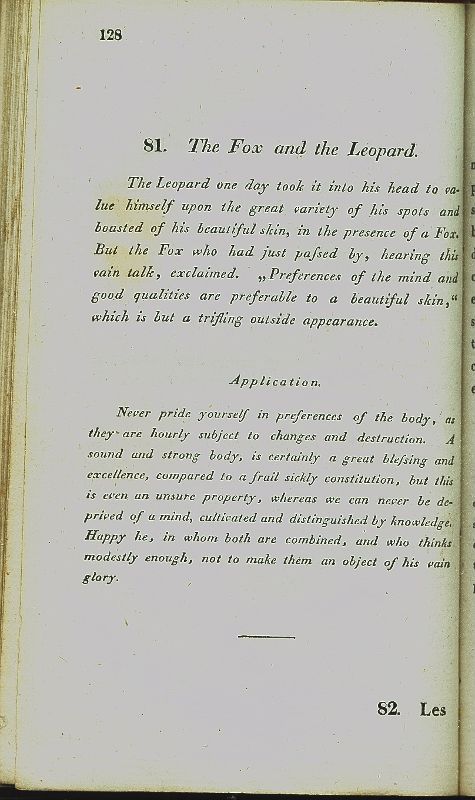 128
81. The Fox and the Leopard.
The Leopard one day took it into his head to va-
lue himself upon the great variety of his spots and
boasted of his beautiful skin, in the presence of a Fox.
But the Fox who had just paſsed by, hearing this
vain talk, exclaimed. „Preferences of the mind and
good qualities are preferable to a beautiful skin,“
which is but a trifling outside appearance.
Application.
Never pride yourself in preferences of the body, as
they are hourly subject to changes and destruction. A
sound and strong body, is certainly a great bleſsing and
excellence, compared to a frail sickly constitution, but this
is even an unsure property, whereas we can never be de-
prived of a mind, cultivated and distinguished by knowledge.
Happy he, in whom both are combined, and who thinks
modestly enough, not to make them an object of his vain
glory.
82. Les